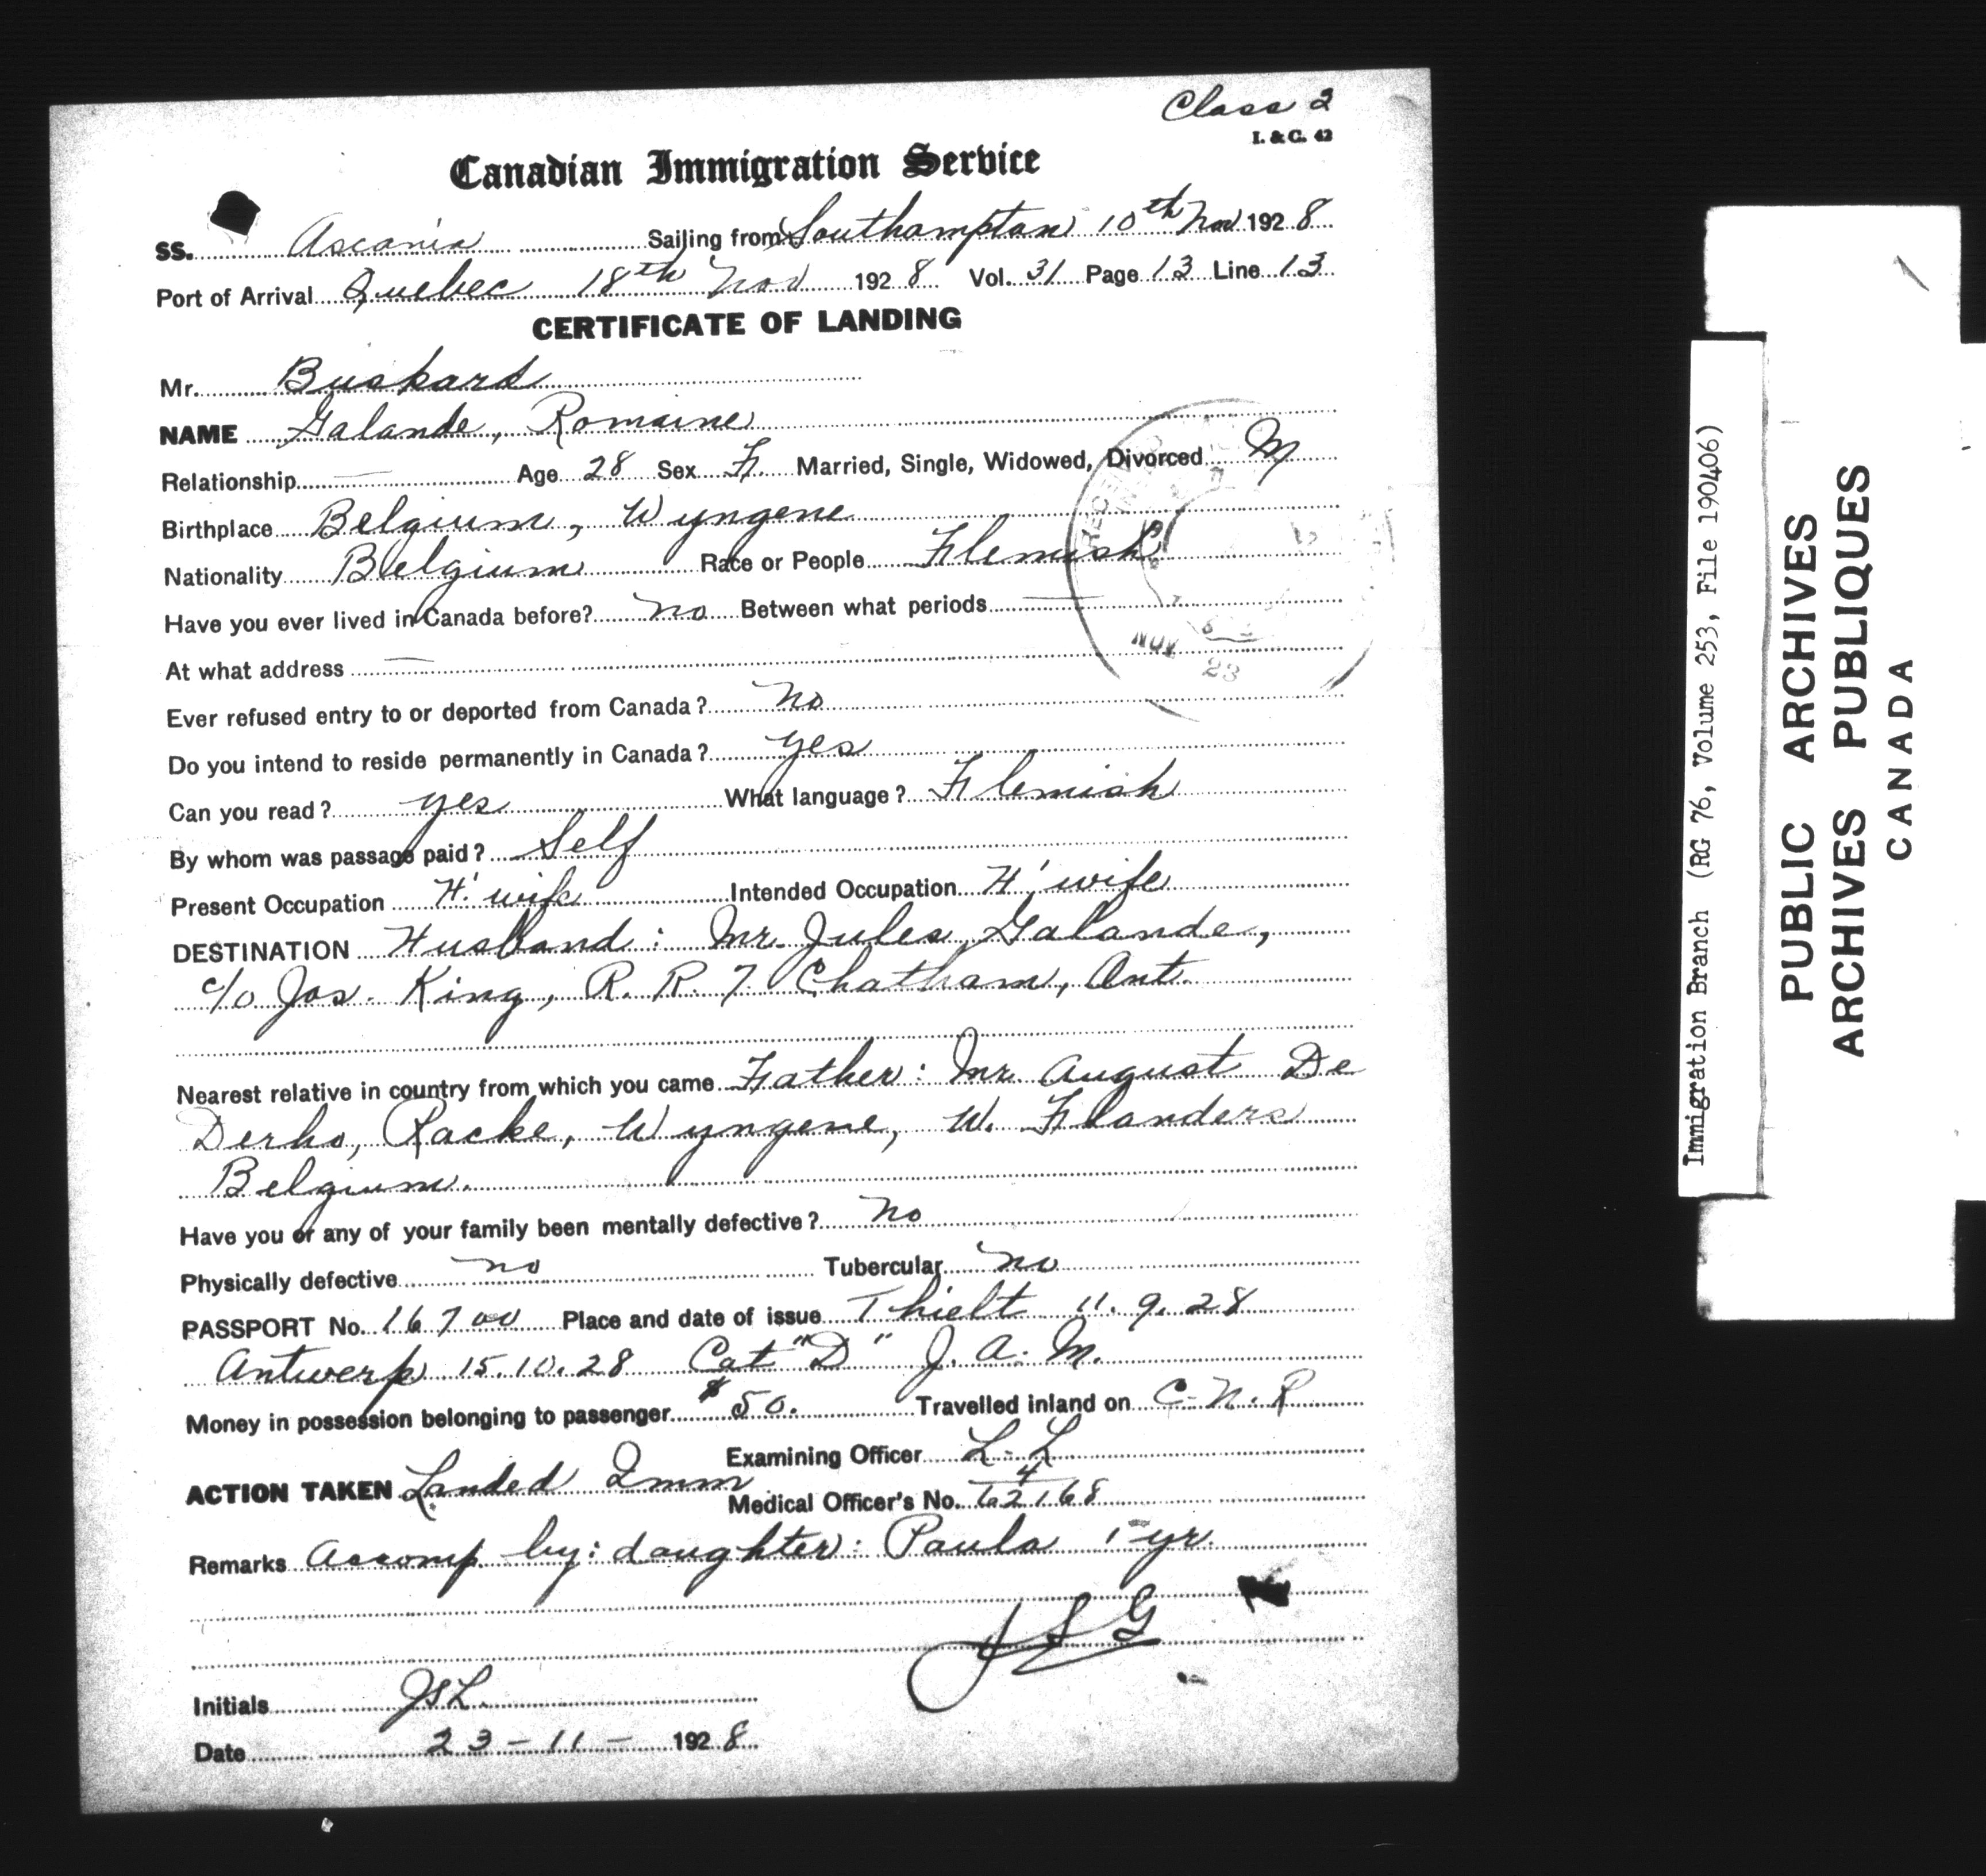 Class 2
I. & C. 42
Canadian Immigration Service
SS. Ascania Sailing from Southampton 10th Nov 1928
Port of Arrival Quebec 18th Nov 1928 Vol. 31 Page 13 Line 13
CERTIFICATE OF LANDING
Mr. Buskard
NAME Galande, Romaine
Relationship — Age 28 Sex F. Married, Single, Widowed, Divorced M
Birthplace Belgium, Wyngene
Nationality Belgium Race or People Flemish
Have you ever lived in Canada before? no Between what periods —
At what address —
Ever refused entry to or deported from Canada? no
Do you intend to reside permanently in Canada? yes
Can you read? yes What language? Flemish
By whom was passage paid? Self
Present Occupation H'wife Intended Occupation H'wife
DESTINATION Husband: Mr. Jules Galande,
c/o Jos. King, R. R. 7 Chatham, Ont.
Nearest relative in country from which you came Father: Mr. August De
Derho, Racke, Wyngene, W. Flanders
Belgium.
Have you or any of your family been mentally defective? no
Physically defective no Tubercular no
PASSPORT No. 16700 Place and date of issue Thielt 11.9.28
Antwerp 15.10.28 Cat "D" J. A. M.
Money in possession belonging to passenger $50. Travelled inland on C.N.R
Examining Officer L.L
ACTION TAKEN Landed Imm
Medical Officer's No. 62168
Remarks Accomp by: daughter: Paula 1 yr.
JSG
Initials JSL
Date 23-11-1928
NOV
23
Immigration Branch (RG 76, Volume 253, File 190406)
PUBLIC ARCHIVES
ARCHIVES PUBLIQUES
CANADA